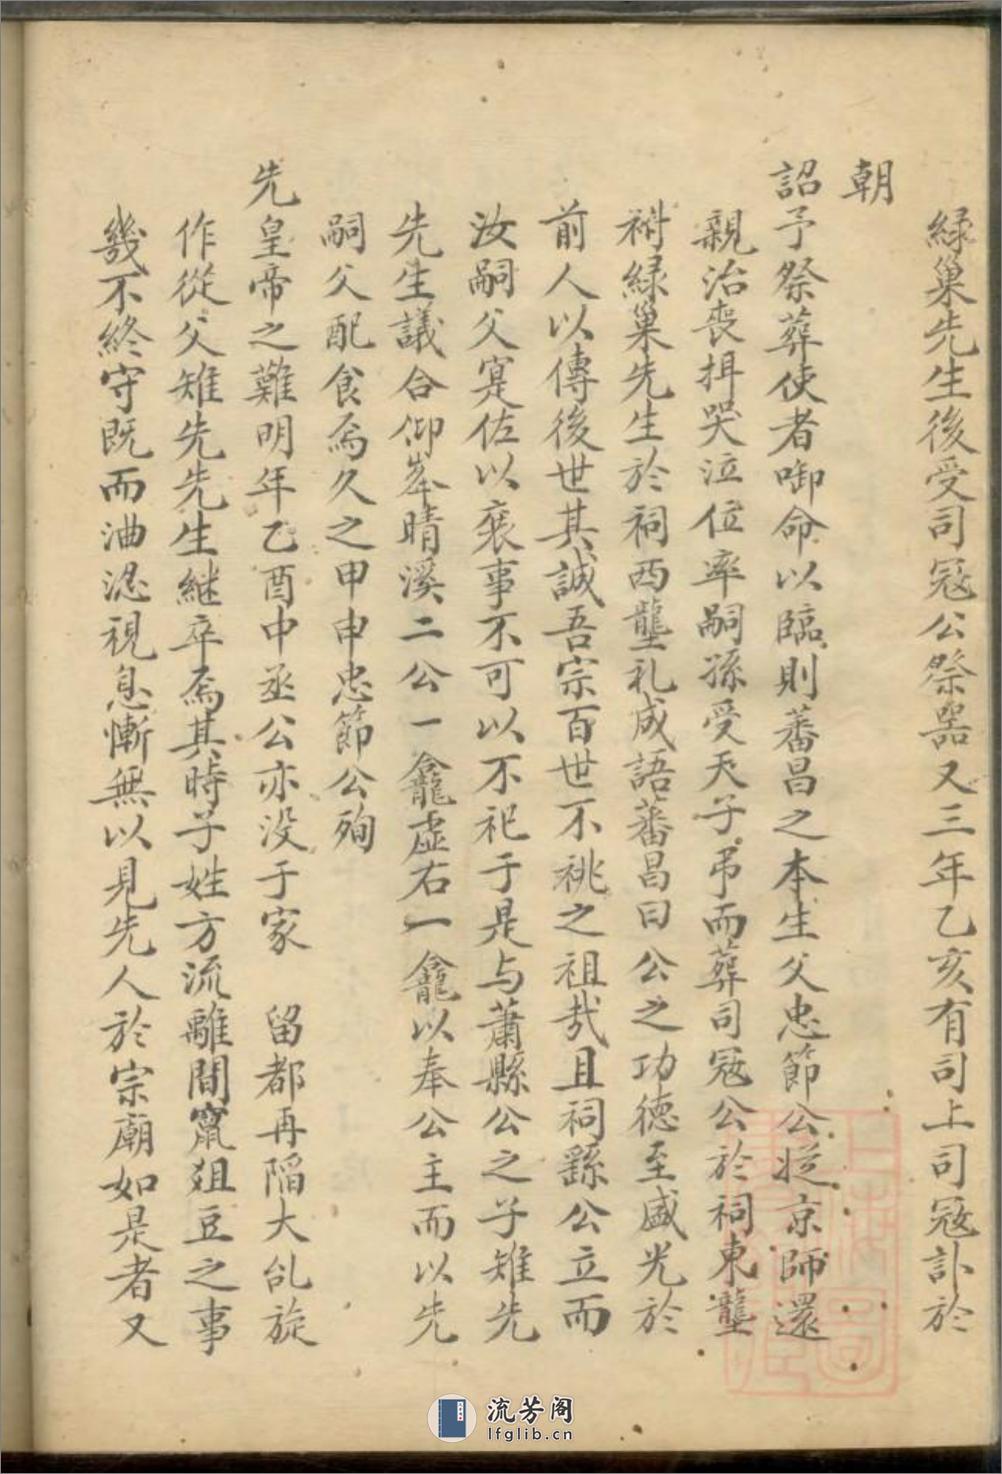 緑巢先生後受司冦公祭噐又三年乙亥有司上司冦訃於
朝
詔予祭葬使者啣命以臨則蕃昌之本生父忠節公從京師還
親治喪揖哭泣位率嗣孫受天子弔而葬司冦公於祠東壟
祔緑巢先生於祠西壟礼成語蕃昌曰公之功德至盛光於
前人以傳後世其誠吾宗百世不祧之祖哉且祠繇公立而
汝嗣父寔佐以襄事不可以不祀于是与蕭縣公之子雉先
先生議合仰峯晴溪二公一龕虛右一龕以奉公主而以先
嗣父配食焉久之甲申忠節公殉
先皇帝之難明年乙酉中丞公亦没于家 留都再陷大乱旋
作從父雉先先生継卒焉其時子姓方流離間竄俎豆之事
幾不終守既而視息慚無以見先人於宗廟如是者又
流芳阁
lfglib.cn